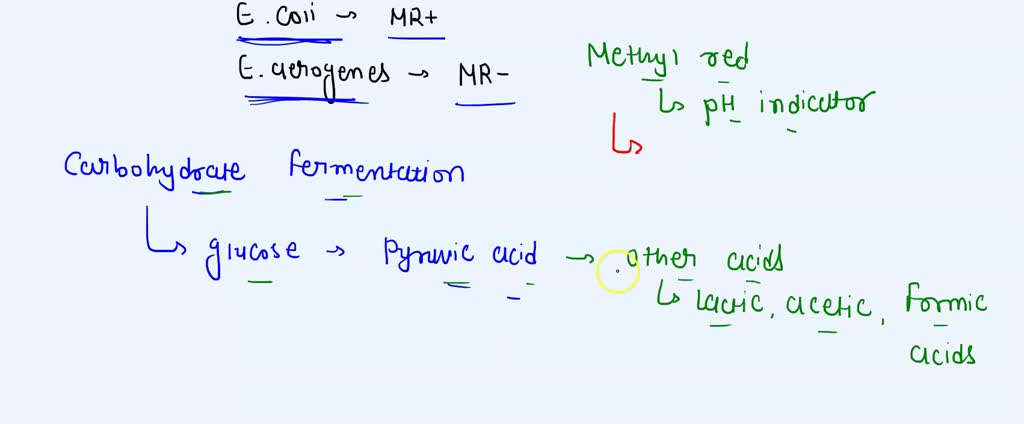 E. coli → MR+
E. aerogenes → MR-
Methyl red
↳ pH indicator
Carbohydrate fermentation
↳ glucose → Pyruvic acid → other acids
↳ lactic, acetic, formic
acids